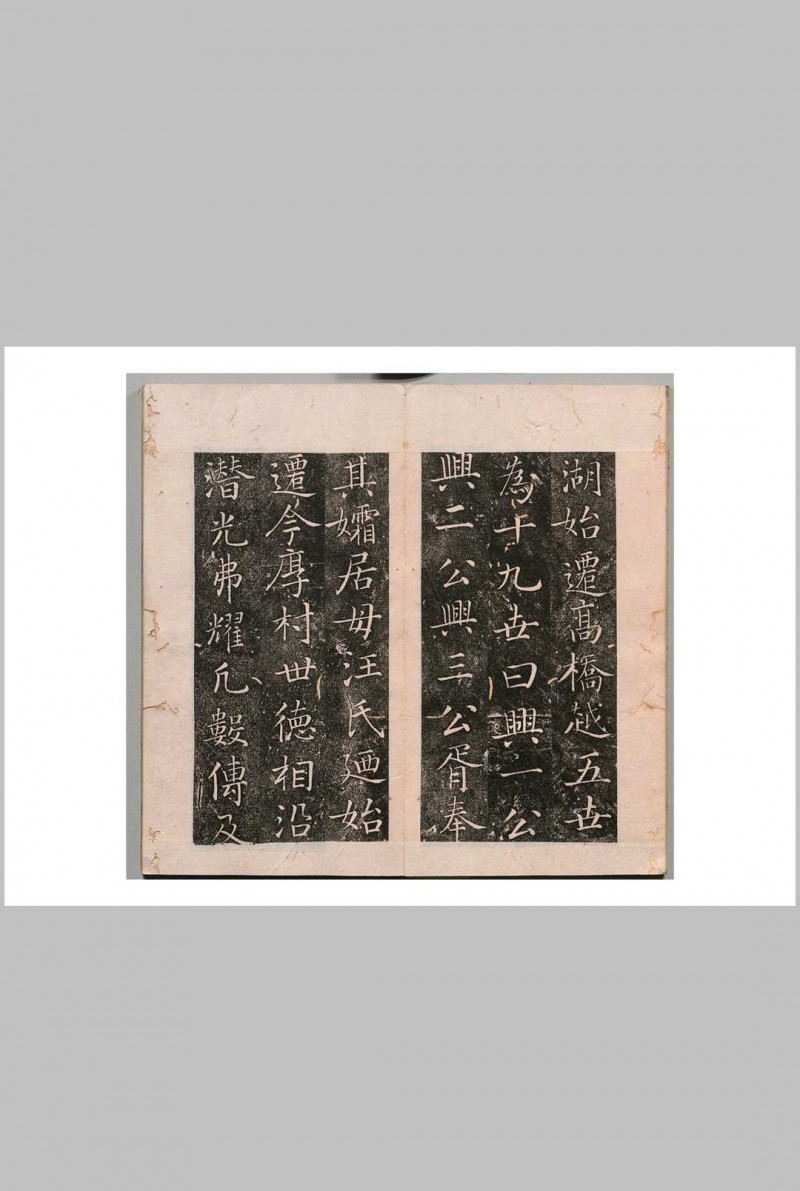 湖始遷高橋越五世
為十九世曰興一公
興二公興三公胥奉
其孀居母汪氏廼始
遷今厚村世德相沿
潜光弗耀凡數傳及